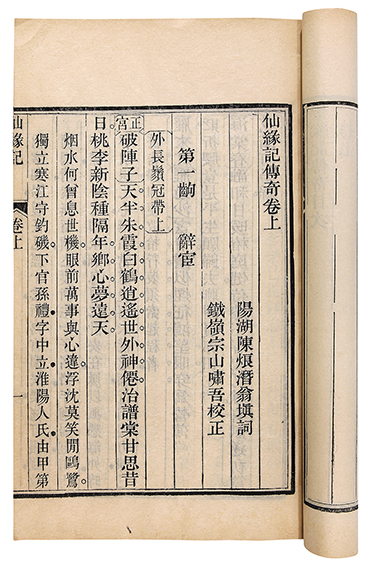 仙緣記傳奇卷上
陽湖陳烺潛翁填詞
鐵嶺宗山嘯吾校正
第一齣 辭宦
外長鬚冠帶上
正宮破陣子天半朱霞白鶴逍遙世外神僊治譜棠甘思昔
日桃李新陰種隔年鄉心夢遠天
烟水何曾息世機眼前萬事與心違浮沈莫笑閒鷗鷺
獨立寒江守釣磯下官孫禮字中立淮陽人氏由甲第
仙緣記 卷上 一